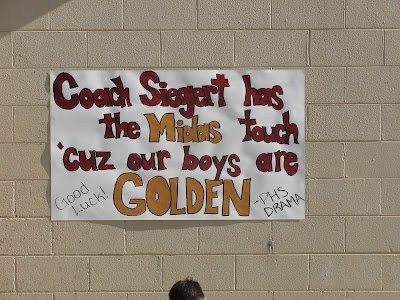 Coach Siegert has
the Midas touch
'cuz our boys are
GOLDEN
Good
Luck!
-PHS
DRAMA